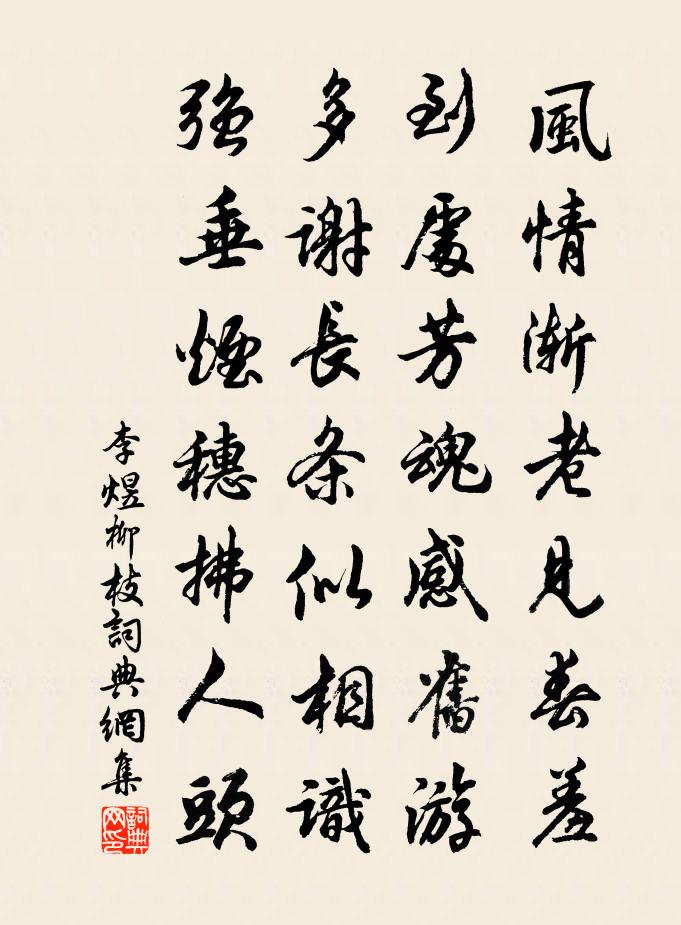 風情漸老見春羞
到處芳魂感舊游
多謝長条似相識
強垂煙穗拂人頭
李煜柳枝詞典網集
詞典网印